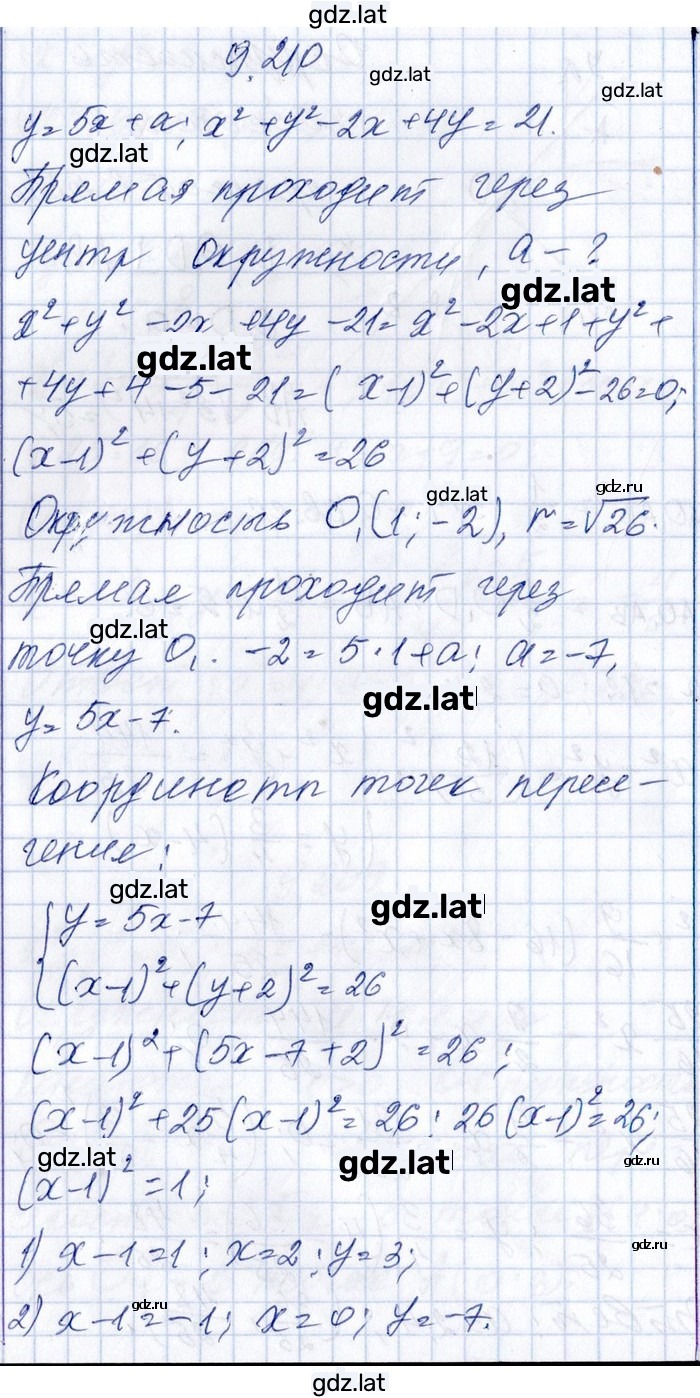 gdz.lat
9.210
gdz.lat
gdz.lat
y = 5x + a; x² + y² - 2x + 4y = 21.
gdz.lat
Прямая проходит через
центр окружности, a - ?
gdz.lat
x² + y² - 2x + 4y - 21 = x² - 2x + 1 + y² +
gdz.lat
+ 4y + 4 - 5 - 21 = (x-1)² + (y+2)² - 26 = 0;
(x-1)² + (y+2)² = 26
gdz.lat
gdz.ru
Окружность O₁(1; -2), r = √26.
Прямая проходит через
gdz.lat
точку O₁. -2 = 5·1 + a; a = -7,
gdz.lat
y = 5x - 7.
Координаты точек пересе-
чения:
gdz.lat
gdz.lat
{ y = 5x - 7
(x-1)² + (y+2)² = 26
(x-1)² + (5x - 7 + 2)² = 26;
(x-1)² + 25(x-1)² = 26; 26(x-1)² = 26;
gdz.lat
gdz.lat
gdz.ru
(x-1)² = 1;
gdz.ru
1) x - 1 = 1; x = 2; y = 3;
gdz.ru
2) x - 1 = -1; x = 0; y = -7.
gdz.lat